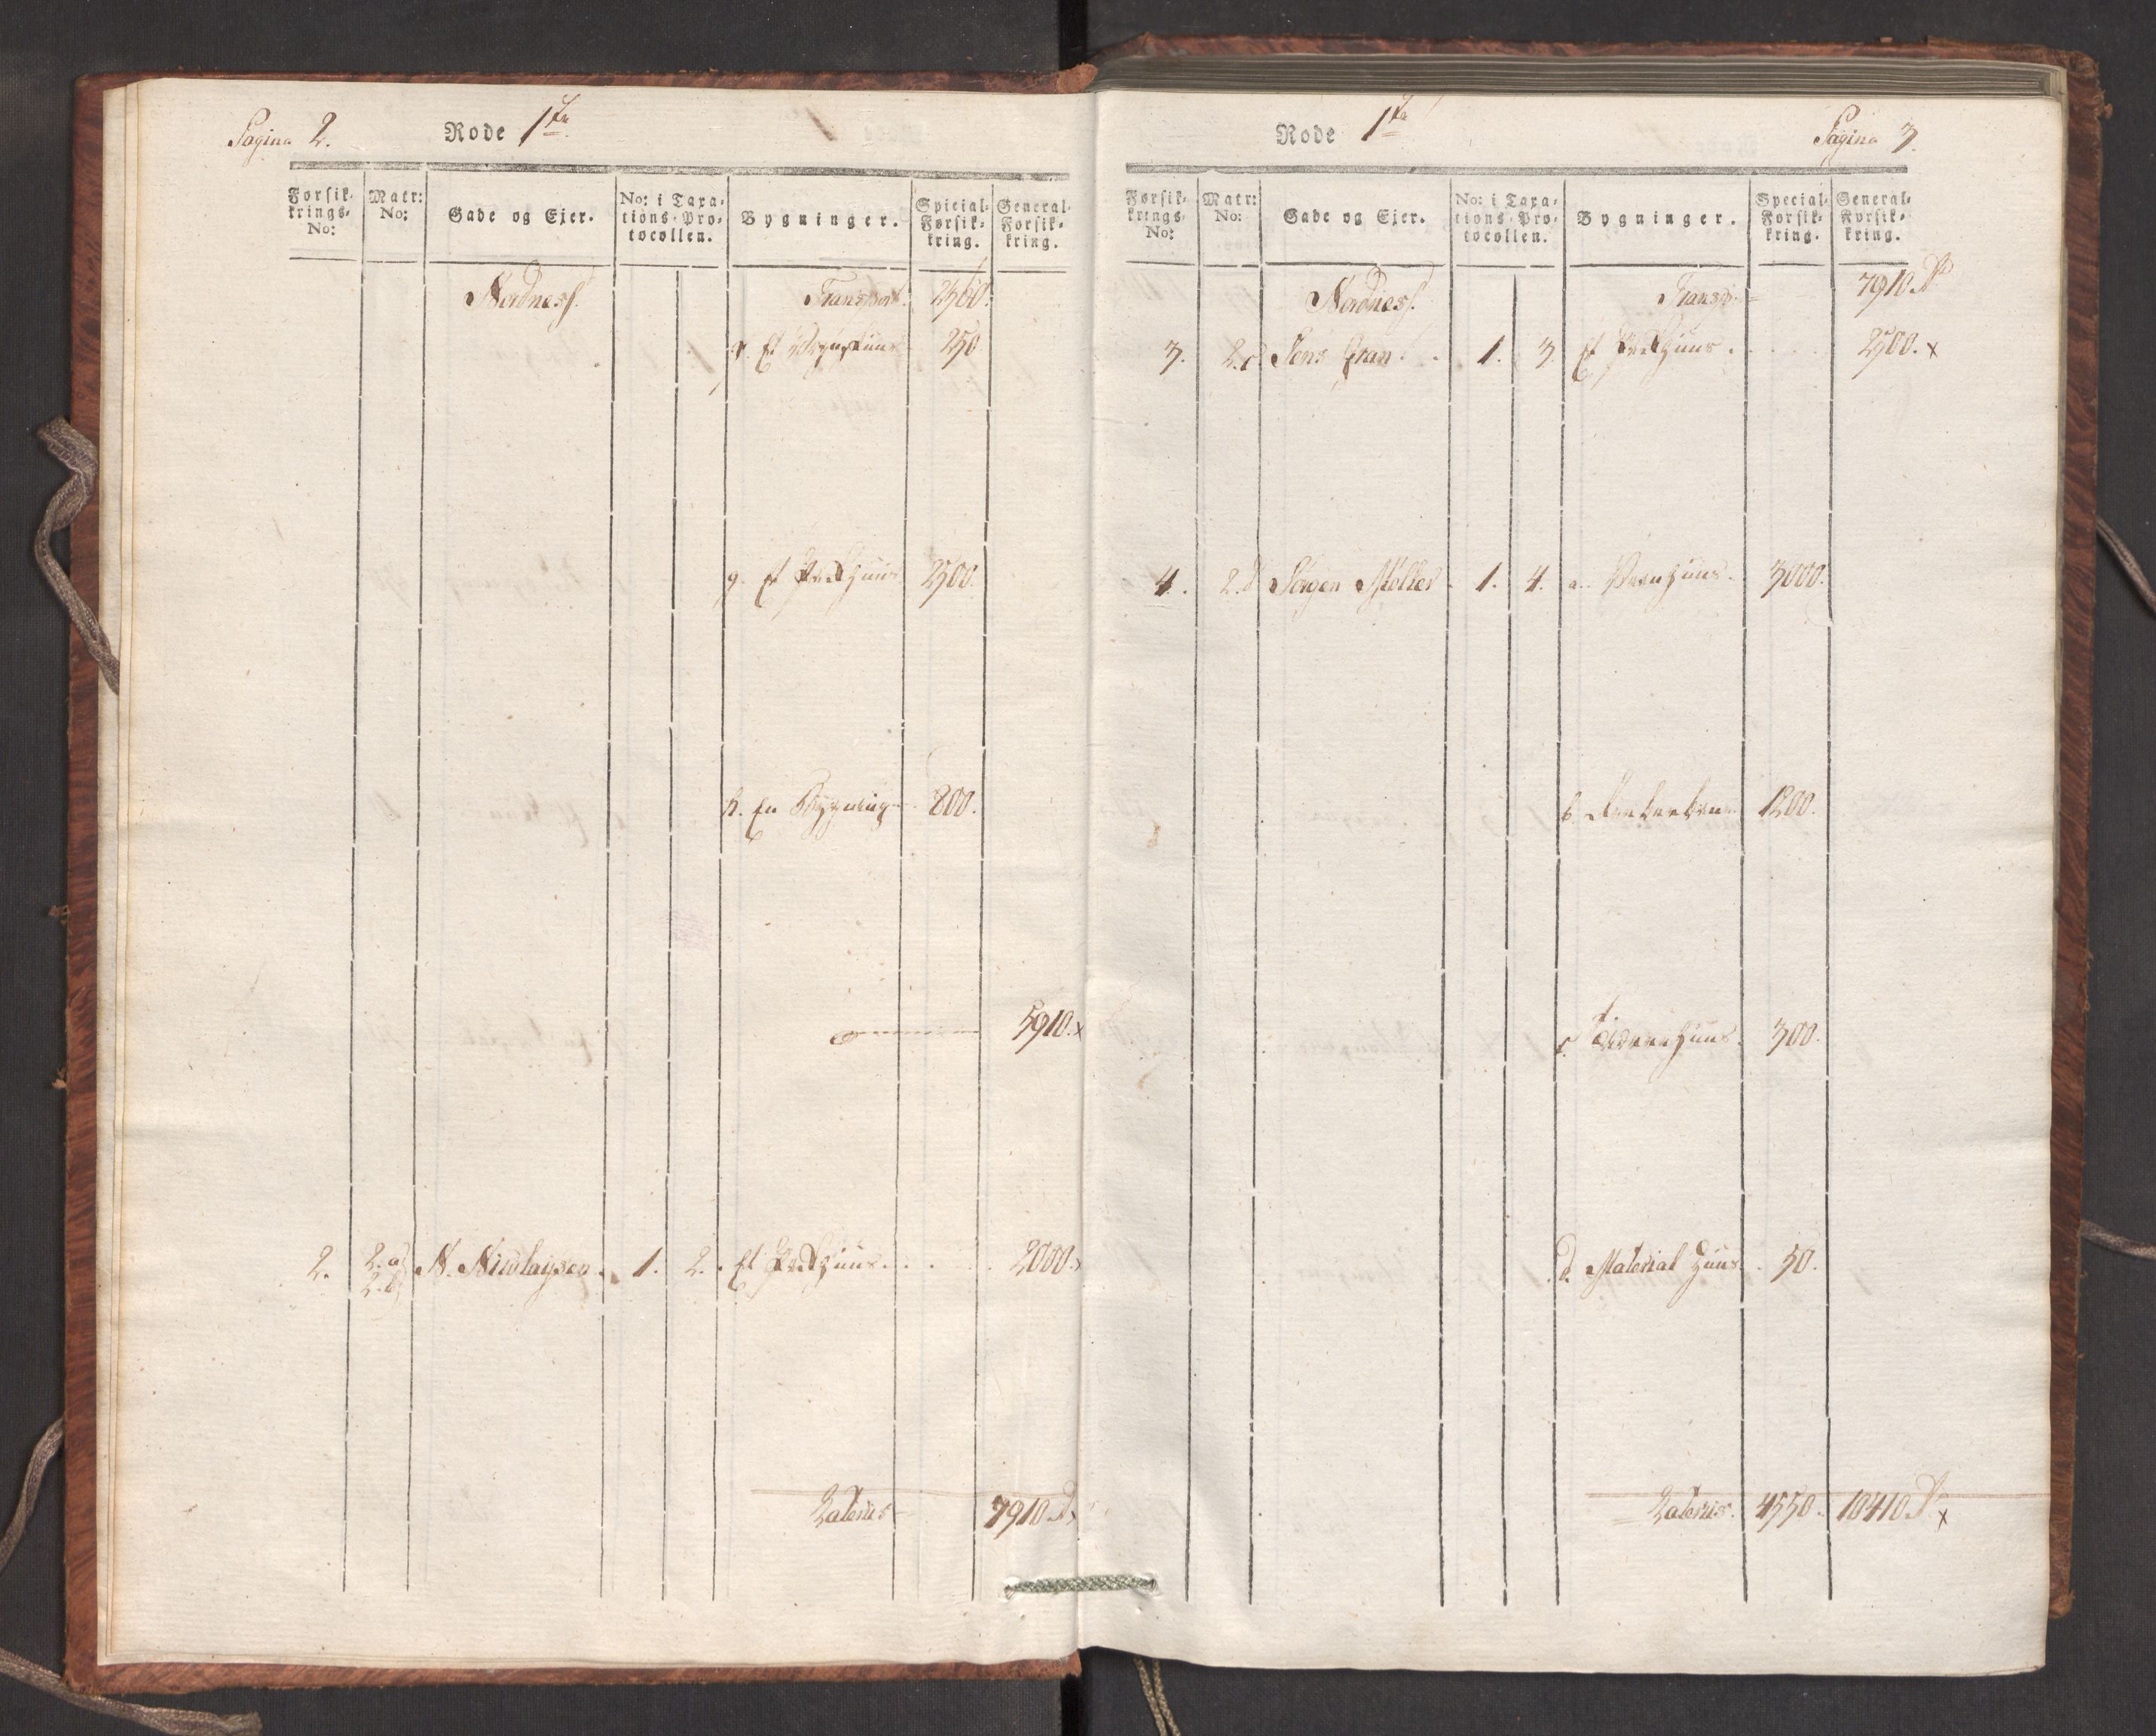 Pagina 2.
Rode 1ste
Forsik-
krings-
No:
Matr:
No:
Gade og Ejer.
No: i Taxa-
tions-Pro-
tocollen.
Bygninger.
Spicial-
Forsik-
kring.
General-
Forsik-
kring.
Nordness. Transport. 2360.
f. Et Bryghuus 250
g. Et Søehuus 2500.
h. En Bygning 800.
5910. x
2. 2.a 2.b N. Nicolaysen. 1. 2. Et Søehuus 2000. x
Lateris 7910. x
Rode 1ste
Pagina 3.
Forsik-
krings-
No:
Matr:
No:
Gade og Ejer.
No: i Taxa-
tions-Pro-
tocollen.
Bygninger.
Special-
Forsik-
kring.
General-
Forsik-
kring.
Nordness. Transp. 7910.
3. 2.c Jens Gran 1. 3. Et Søehuus 2500. x
4. 2.d Jørgen Møller 1. 4. a. Vaanhuus. 3000.
b. 1200.
c. 300.
d. Material Huus 50.
Lateris. 4550. 10410. x